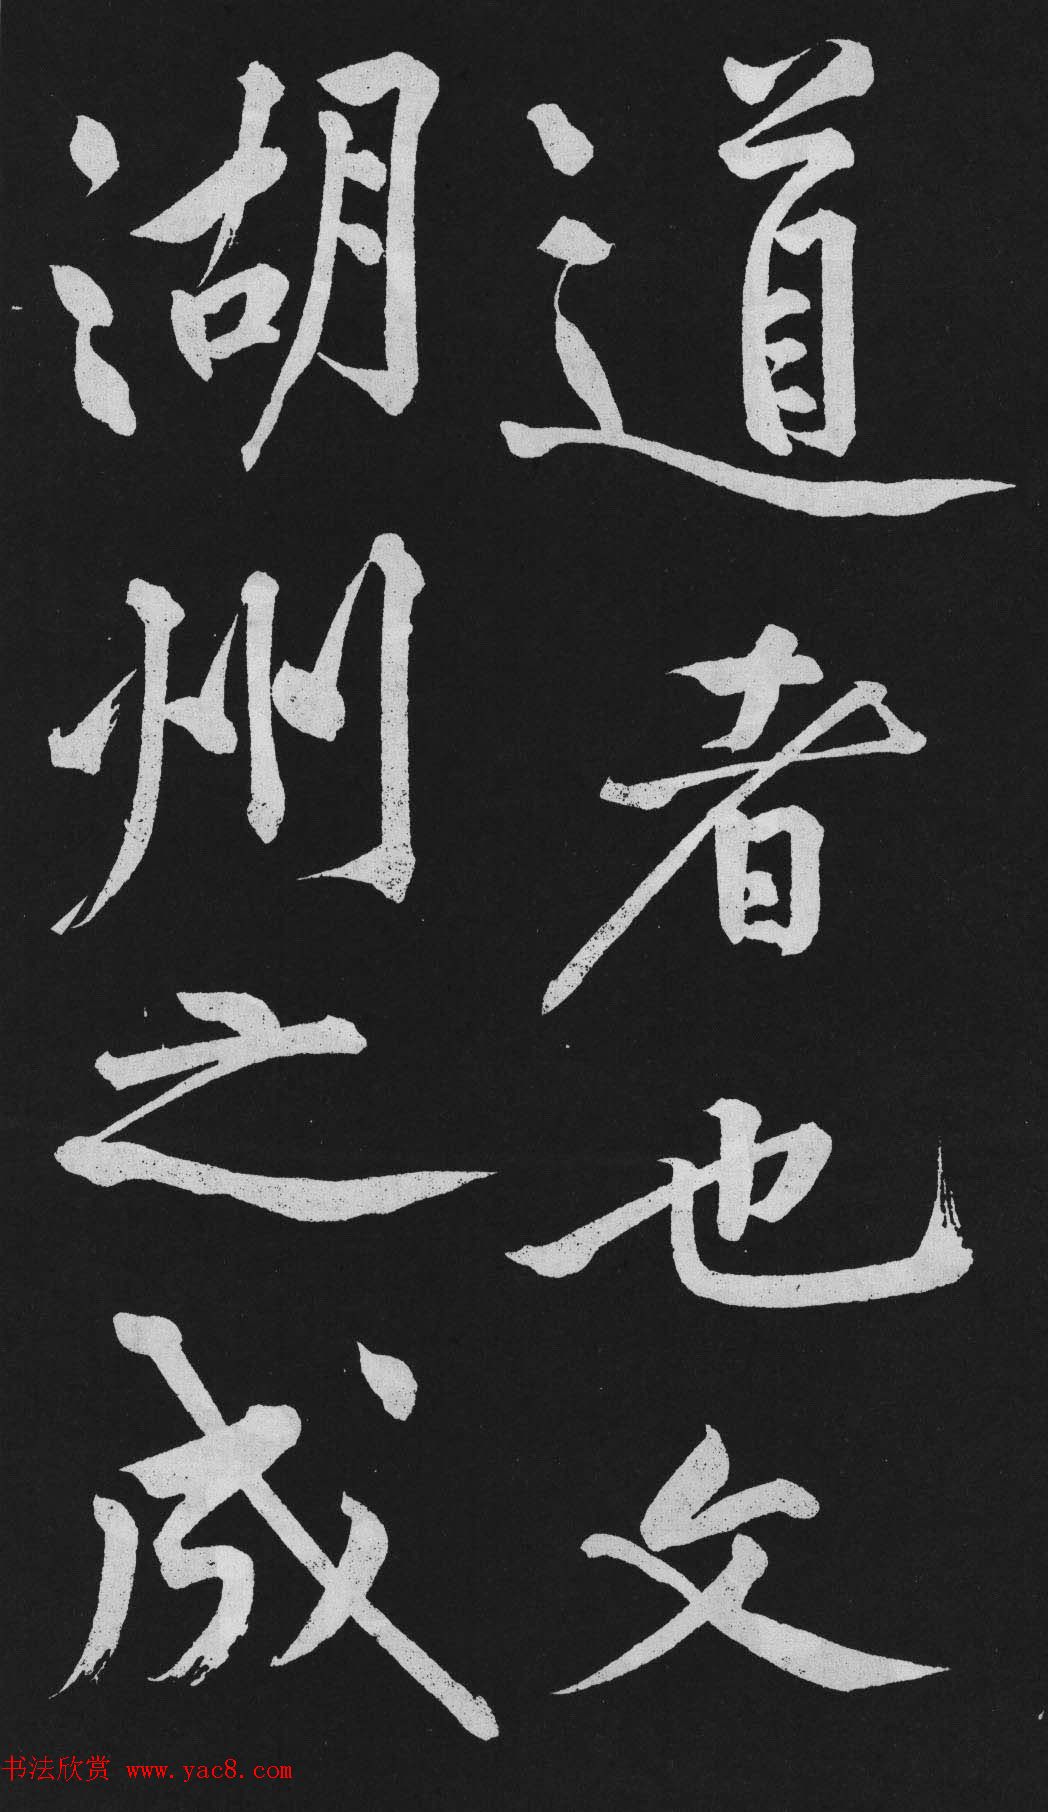 道者也文
湖州之成
书法欣赏 www.yac8.com